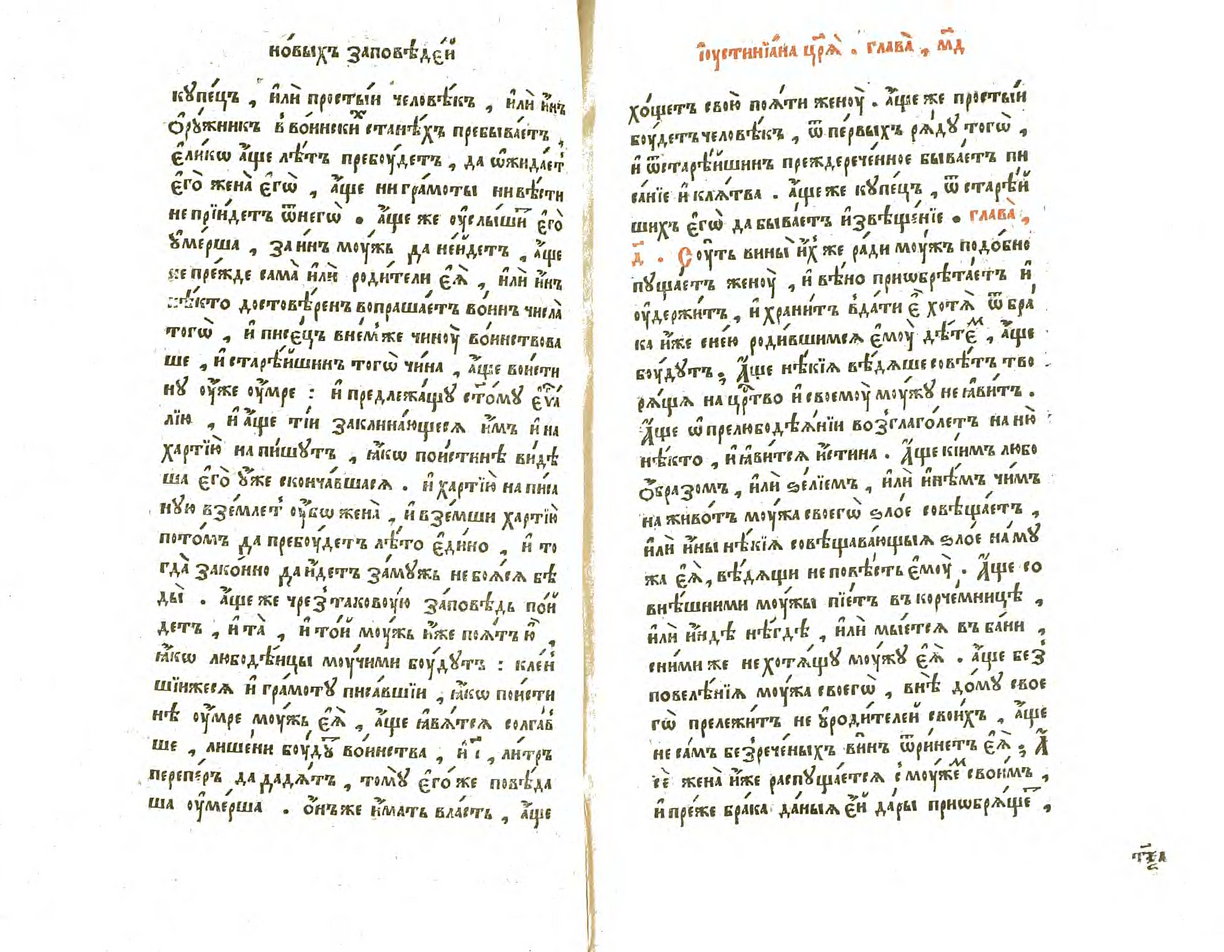 но́выхъ заповѣде́й
купе́цъ , и҆лѝ просты́и человѣ́къ , и҆лѝ и҆́нъ
ѻ҆рꙋ́жникъ в̾ во́ински ста́нѣхъ пребыва́етъ ,
є҆ли́кѡ а҆́ще лѣ́тъ пребоу́детъ , да ѡ҆жида́ет
є҆гѡ̀ жена̀ є҆гѡ̀ , а҆́ще ни гра́моты ни вѣ́сти
не прїи́детъ ѿ негѡ̀ . а҆́ще же оу҆слы́ши є҆го̀
ᲂу҆ме́рша , за и҆́нъ моу́жъ да не и҆́детъ , а҆́ще
не пре́жде сама̀ и҆лѝ роди́тели є҆ѧ̀ , и҆лѝ и҆́нъ
нѣ́кто достовѣ́ренъ вопраша́етъ во́инъ числа̀
тогѡ̀ , и҆ писе́цъ в не́мже чиноу̀ во́инствова
ше , и҆ старѣ́йшинъ тогѡ̀ чи́на , а҆́ще вои́сти
нꙋ оу҆же оу҆́мре : и҆ предлежа́щꙋ ст҃о́мꙋ є҆ѵⷢ҇а́
лїю , и҆ а҆́ще ті́и заклина́ющесѧ и҆́мъ и҆ на
хартїю̀ напи́шꙋтъ , ꙗ҆́кѡ пои́стиннѣ ви́дѣ
ша є҆го̀ ᲂу҆же сконча́вшасѧ . и҆ хартїю̀ написа
нꙋю в̾зе́млет оу҆́бѡ жена̀ , и҆ в̾зе́мши хартїю̀
пото́мъ да пребоу́детъ лѣ́то є҆ди́но , и҆ то
гда̀ зако́нно да и҆́детъ за́мꙋжъ не боѧ́сѧ бѣ
ды̀ . а҆́ще же чрез̾ такову́ю за́повѣдь по́й
детъ , и҆ та̀ , и҆ то́й моу́жъ и҆́же поѧ́тъ ю҆̀ ,
ꙗ҆́кѡ любодѣ́ицы моу́чими боу́дꙋтъ : кле́н
шїижесѧ и҆ гра́мотꙋ писа́вшїи , ꙗ҆́кѡ пои́сти
нѣ оу҆́мре моу́жъ є҆ѧ̀ , а҆́ще ꙗ҆вѧ́тсѧ солга́в
ше , лише́ни боу́дꙋ во́инства , и҆ і҃ , ли́тръ
перепе́ръ да дадѧ́тъ , томꙋ̀ є҆го́же повѣ́да
ша оу҆ме́рша . ѻ҆́нъже и҆́мать вла́сть , а҆́ще
І҆оустинїа́на цр҃ѧ̀ . глава̀ , м҃д
хо́щетъ свою̀ поѧ́ти женоу̀ . а҆́ще же просты́и
боу́детъ человѣ́къ , ѿ пе́рвыхъ рѧ́дꙋ тогѡ̀ ,
и҆ ѿ старѣ́йшинъ преждерече́нное быва́етъ пи
са́нїе и҆ клѧ́тва . а҆́ще же купе́цъ , ѿ старѣ́й
шихъ є҆гѡ̀ да быва́етъ и҆звѣще́нїе . глава̀ ,
д҃ . Соу́ть вины̀ и҆́хже ра́ди моу́жъ подо́бно
пꙋща́етъ женоу̀ , и҆ вѣ́но приѡбрѣта́етъ и҆
оу҆держи́тъ , и҆ храни́тъ в̾да́ти є҆̀ хотѧ̀ ѿ бра́
ка и҆́же с не́ю роди́вшимсѧ є҆моу̀ дѣ́темъ , а҆́ще
боу́дꙋтъ ; А҆́ще нѣ́кїѧ вѣ́дѧше совѣ́тъ тво
рѧ́щѧ на цр҃тво и҆ своемоу̀ моу́жꙋ не ꙗ҆ви́тъ .
А҆́ще ѡ҆ прелюбодѣѧ́нїи воз̾глаго́летъ на ню̀
нѣ́кто , и҆ ꙗ҆ви́тсѧ и҆́стина . А҆́ще кі́имъ любо
ѻ҆́бразомъ , и҆лѝ ѕе́лїемъ , и҆лѝ и҆нѣ́мъ чи́мъ
на живо́тъ моу́жа своегѡ̀ ѕло́е совѣща́етъ ,
и҆лѝ и҆́ны нѣ́кїѧ совѣщава́ющыѧ ѕло́е на мꙋ́
жа є҆ѧ̀ , вѣ́дѧщи не повѣ́сть є҆моу̀ . А҆́ще со
внѣ́шними моу́жы пїе́тъ въ корче́мницѣ ,
и҆лѝ и҆́ндѣ нѣ́гдѣ , и҆лѝ мы́етсѧ въ ба́ни ,
с ни́ми же не хотѧ́щꙋ моу́жꙋ є҆ѧ̀ . а҆́ще без̾
повелѣ́нїѧ моу́жа своегѡ̀ , внѣ̀ до́мꙋ свое
гѡ̀ прележи́тъ не ᲂу҆ роди́телей свои́хъ , а҆́ще
не са́мъ без̾ рече́ныхъ ви́нъ ѿри́нетъ є҆ѧ̀ ; А҆
сѐ жена̀ и҆́же распꙋща́етсѧ с̾ моу́жемъ свои́мъ ,
и҆ пре́же бра́ка да́ныѧ є҆́й да́ры приѡбрѧ́ще ,